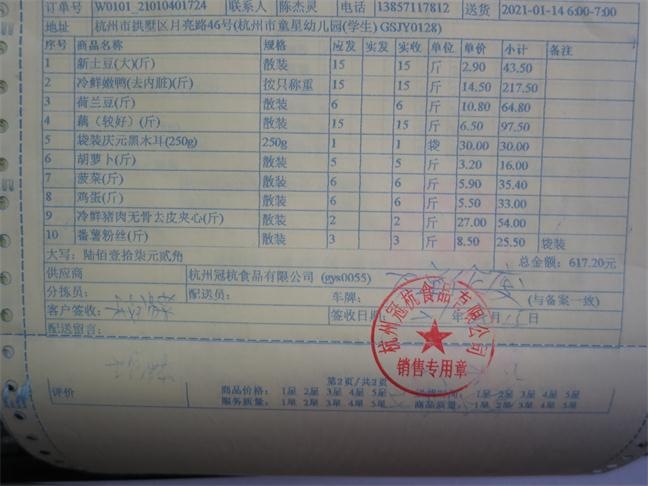 订单号 W0101_21010401724 联系人 陈杰灵 电话 13857117812 送货 2021-01-14 6:00-7:00
地址 杭州市拱墅区月亮路46号(杭州市童星幼儿园(学生) GSJY0128)
序号 商品名称 规格 应发 实发 实收 单位 单价 小计 备注
1 新土豆(大)(斤) 散装 15 15 斤 2.90 43.50
2 冷鲜嫩鸭(去内脏)(斤) 按只称重 15 15 斤 14.50 217.50
3 荷兰豆(斤) 散装 6 6 斤 10.80 64.80
4 藕（较好）(斤) 散装 15 15 斤 6.50 97.50
5 袋装庆元黑木耳(250g) 250g 1 1 袋 30.00 30.00
6 胡萝卜(斤) 散装 5 5 斤 3.20 16.00
7 菠菜(斤) 散装 6 6 斤 5.90 35.40
8 鸡蛋(斤) 散装 6 6 斤 5.50 33.00
9 冷鲜猪肉无骨去皮夹心(斤) 散装 2 2 斤 27.00 54.00
10 番薯粉丝(斤) 散装 3 3 斤 8.50 25.50 袋装
大写：陆佰壹拾柒元贰角 总金额：617.20元
供应商 杭州冠杭食品有限公司 (gys0055)
分拣员： 配送员： 车牌： (与备案一致)
客户签收： 签收日期： 年 月 日
配送留言：
杭州冠杭食品有限公司
销售专用章
第2页/共2页
评价 商品价格： 1星 2星 3星 4星 5星 1星 2星 3星 4星 5星
服务质量： 1星 2星 3星 4星 5星 商品质量： 1星 2星 3星 4星 5星